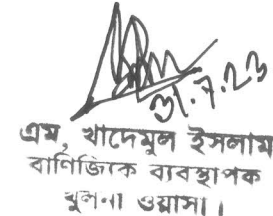 ৩১.৭.২৩
এম, খাদেমুল ইসলাম
বাণিজ্যিক ব্যবস্থাপক
খুলনা ওয়াসা।